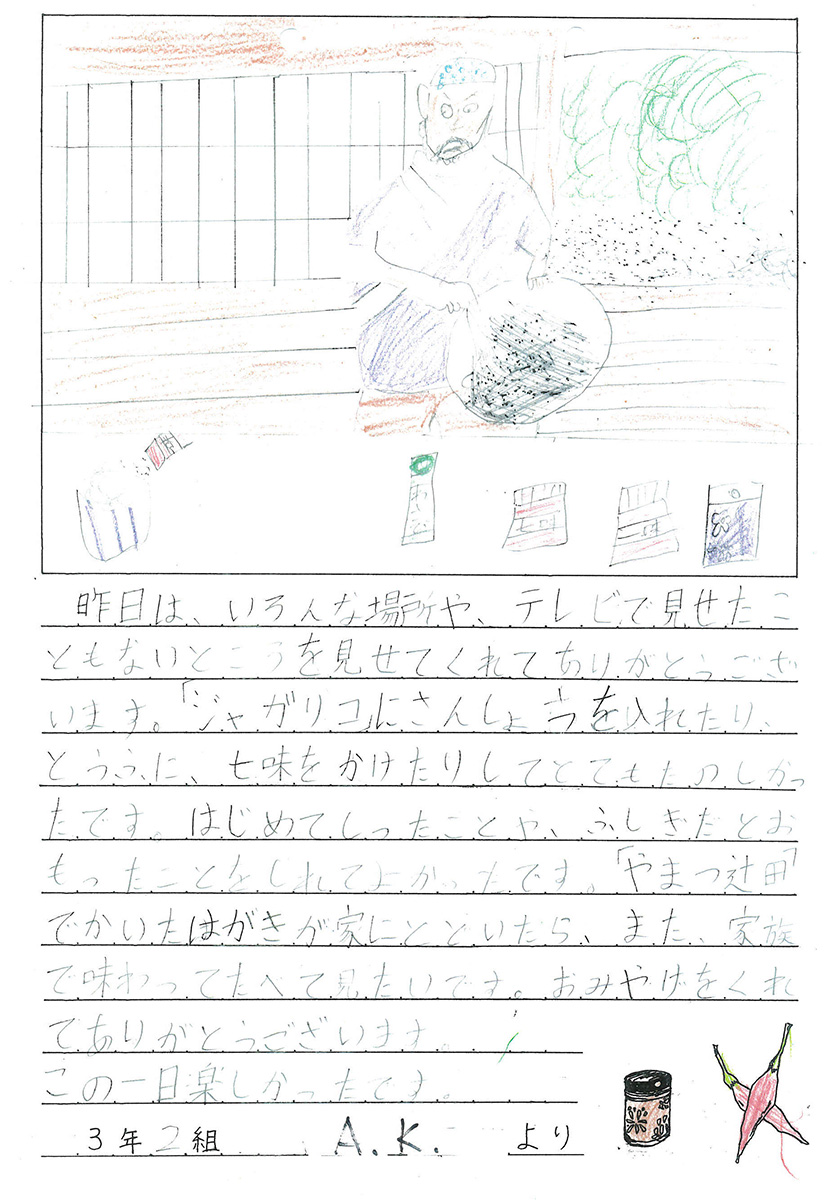 わさび
七味
一味
昨日は、いろんな場所や、テレビで見せたこ
ともないところを見せてくれてありがとうござ
います。「ジャガリコ」にさんしょうを入れたり、
とうふに、七味をかけたりしてとてもたのしかっ
たです。はじめてしったことや、ふしぎだとお
もったことをしれてよかったです。「やまつ辻田」
でかいたはがきが家にとどいたら、また、家族
で味わってたべて見たいです。おみやげをくれ
てありがとうございます。
この一日楽しかったです。
3年2組 A.K. より